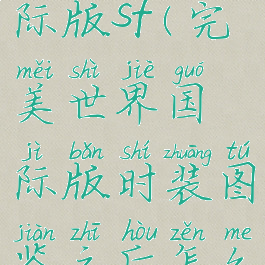 际版sf(完
měi shì jiè guó
美世界国
jì bǎn shí zhuāng tú
际版时装图
jiàn zhī hòu zěn me
鉴之后怎么